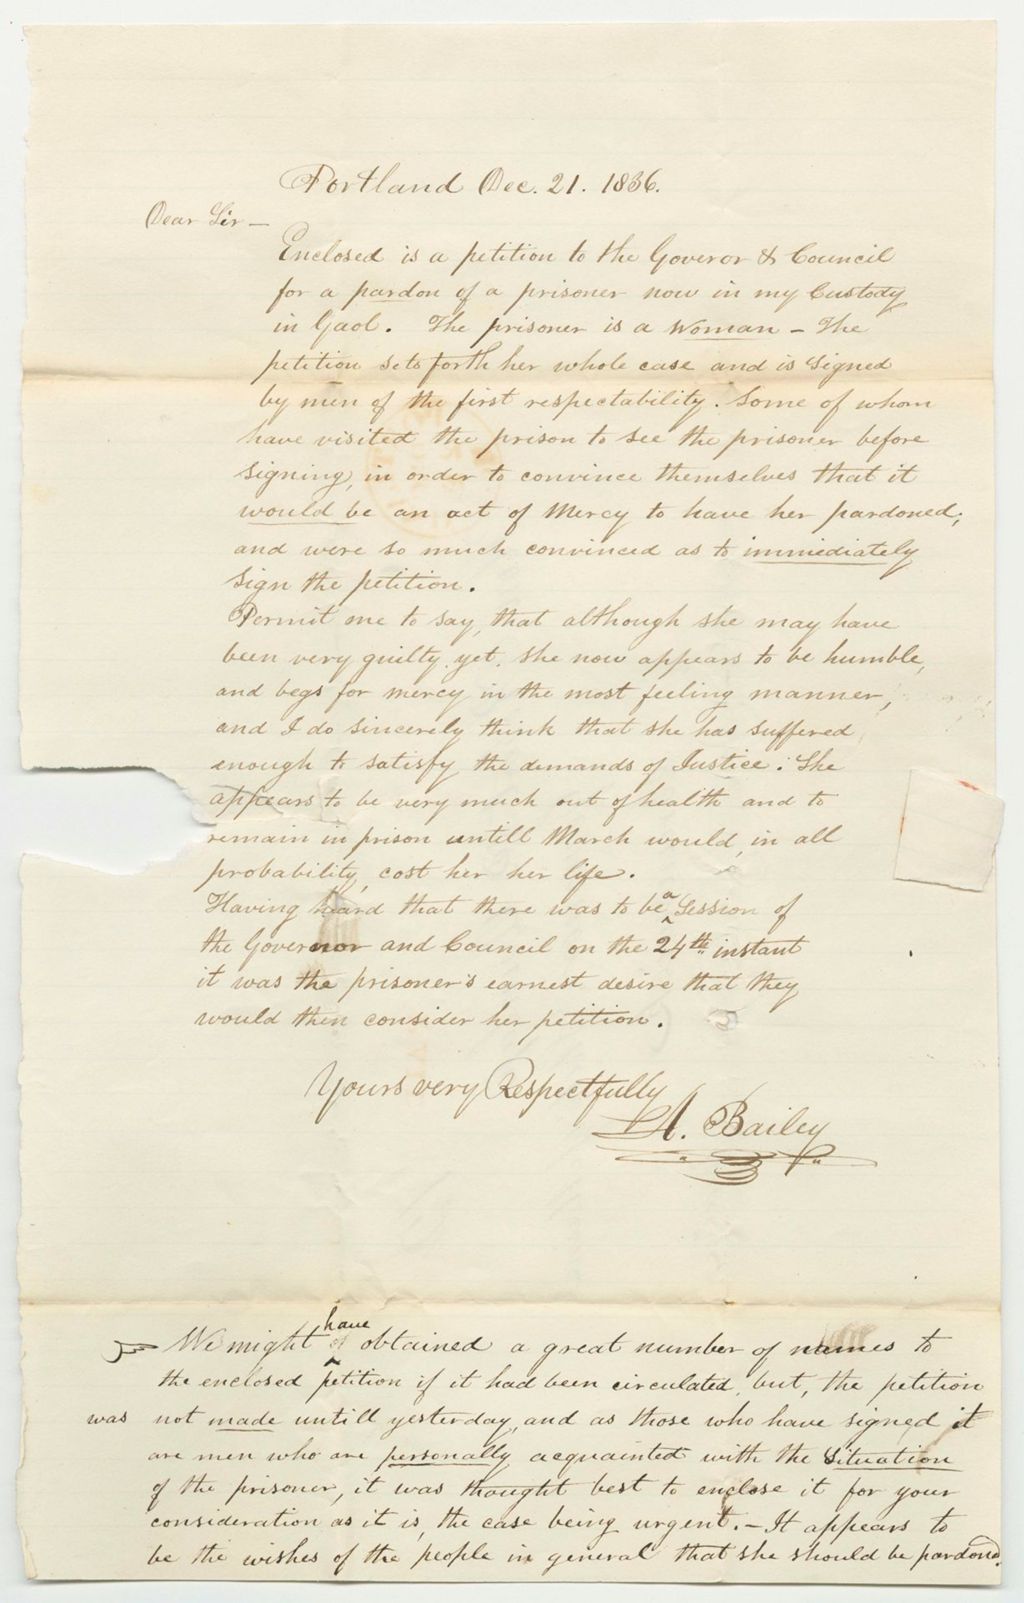 Portland Dec. 21. 1836.
Dear Sir —
Enclosed is a petition to the Goveror & Council
for a pardon of a prisoner now in my Custody
in Gaol. The prisoner is a Woman — The
petition sets forth her whole case and is signed
by men of the first respectability. Some of whom
have visited the prison to see the prisoner before
signing, in order to convince themselves that it
would be an act of Mercy to have her pardoned;
and were so much convinced as to immediately
sign the petition.
Permit me to say, that although she may have
been very guilty yet, she now appears to be humble,
and begs for mercy in the most feeling manner,
and I do sincerely think that she has suffered
enough to satisfy the demands of Justice. She
appears to be very much out of health and to
remain in prison untill March would, in all
probability, cost her her life.
Having heard that there was to be a Session of
the Governor and Council on the 24th instant
it was the prisoner's earnest desire that they
would then consider her petition.
Yours very Respectfully
A. Bailey
We might have obtained a great number of names to
the enclosed petition if it had been circulated, but, the petition
was not made untill yesterday, and as those who have signed it
are men who are personally acquainted with the situation
of the prisoner, it was thought best to enclose it for your
consideration as it is, the case being urgent. — It appears to
be the wishes of the people in general that she should be pardoned.